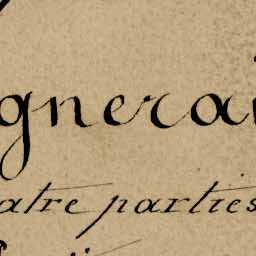 gnerai
atre parties